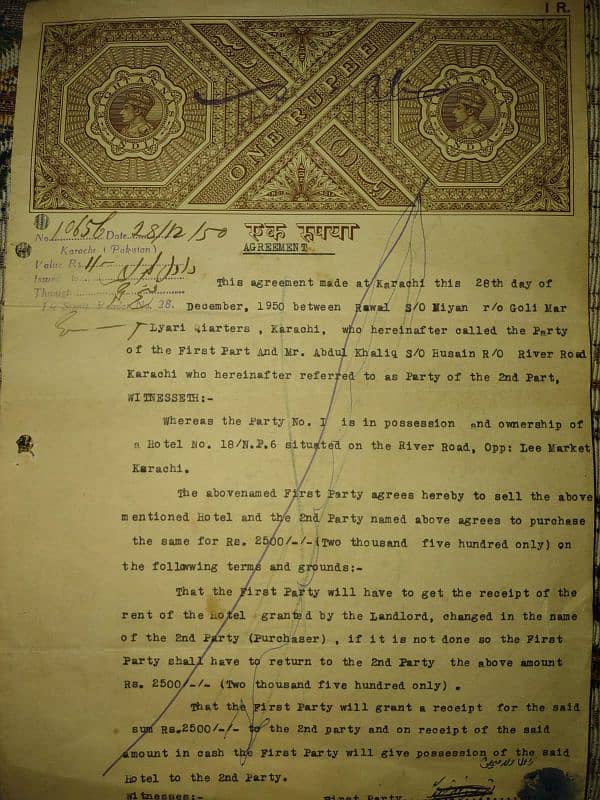 1 R.
ONE RUPEE
INDIA
INDIA
एक रूपया
No. 10656 Date 28/12/50
Karachi (Pakistan)
Value Rs.
Issued to
Through
28.
AGREEMENT
This agreement made at Karachi this 28th day of
December, 1950 between Rawal S/O Miyan r/o Goli Mar
Lyari Qiarters , Karachi, who hereinafter called the Party
of the First Part And Mr. Abdul Khaliq S/O Husain R/O River Road
Karachi who hereinafter referred to as Party of the 2nd Part,
WITNESSETH:-
Whereas the Party No. I is in possession and ownership of
a Hotel No. 18/N.P.6 situated on the River Road, Opp: Lee Market
Karachi.
The abovenamed First Party agrees hereby to sell the above
mentioned Hotel and the 2nd Party named above agrees to purchase
the same for Rs. 2500/-/-(Two thousand five hundred only) on
the following terms and grounds:-
That the First Party will have to get the receipt of the
rent of the Hotel granted by the Landlord, changed in the name
of the 2nd Party (Purchaser) , if it is not done so the First
Party shall have to return to the 2nd Party the above amount
Rs. 2500/-/- (Two thousand five hundred only) .
That the First Party will grant a receipt for the said
sum Rs.2500/-/- to the 2nd party and on receipt of the said
amount in cash the First Party will give possession of the said
Hotel to the 2nd Party.
Witnesses:- First Party